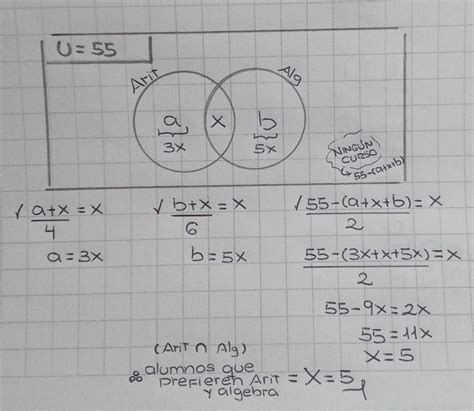 U = 55
Arit
Alg
a
x
b
3x
5x
NINGÚN
CURSO
↳ 55-(a+x+b)
√ a+x/4 = x
√ b+x/6 = x
√ 55-(a+x+b)/2 = x
a = 3x
b = 5x
55-(3x+x+5x)/2 = x
55-9x = 2x
55 = 11x
x = 5
(Arit ∩ Alg)
∴ alumnos que
prefieren Arit = x = 5
y algebra